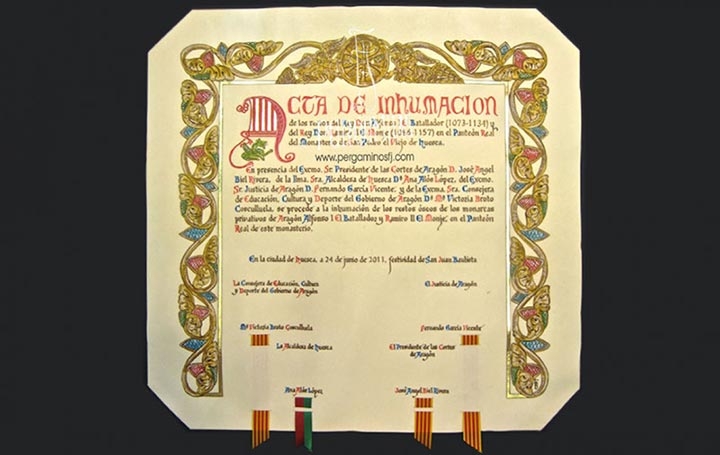 ACTA DE INHUMACION
de los restos del Rey Don Alfonso I El Batallador (1073-1134) y
del Rey Don Ramiro II El Monje (1086-1157) en el Panteón Real
del Monasterio de San Pedro el Viejo de Huesca.
www.pergaminosfj.com
En presencia del Excmo. Sr. Presidente de las Cortes de Aragón D. José Angel
Biel Rivera, de la Ilma. Sra. Alcaldesa de Huesca Dª Ana Alós López, del Excmo.
Sr. Justicia de Aragón D. Fernando García Vicente; y de la Excma. Sra. Consejera
de Educación, Cultura y Deporte del Gobierno de Aragón Dª Mª Victoria Broto
Cosculluela, se procede a la inhumación de los restos óseos de los monarcas
privativos de Aragón Alfonso I El Batallador y Ramiro II El Monje, en el Panteón
Real de este monasterio.
En la ciudad de Huesca, a 24 de junio de 2011, festividad de San Juan Bautista
La Consejera de Educación, Cultura
y Deporte del Gobierno de Aragón
El Justicia de Aragón
Mª Victoria Broto Cosculluela
Fernando García Vicente
La Alcaldesa de Huesca
El Presidente de las Cortes
de Aragón
Ana Alós López
José Angel Biel Rivera